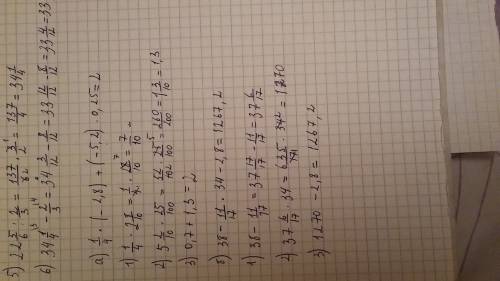 5) 22 5/6 : 2/3 = 137/6 · 3/2 = 137/4 = 34 1/4
6) 34 1/4 - 2/3 = 34 3/12 - 8/12 = 33 12 - 8/12 = 33
а) 1/4 · (-2,8) + (-5,2) · 0,25 = 2
1) 1/4 · 2 8/10 = 1/4 · 28/10 = 7/10
2) 5 2/10 · 25/100 = 52/10 · 25/100 = 260 = 1 3/10 = 1,3
3) 0,7 + 1,3 = 2
б) 38 - 11/17 · 34 - 2,8 = 1267,2
1) 38 - 11/17 = 37 17/17 - 11/17 = 37 6/17
2) 37 6/17 · 34 = 635/17 · 34 = 1270
3) 1270 - 2,8 = 1267,2